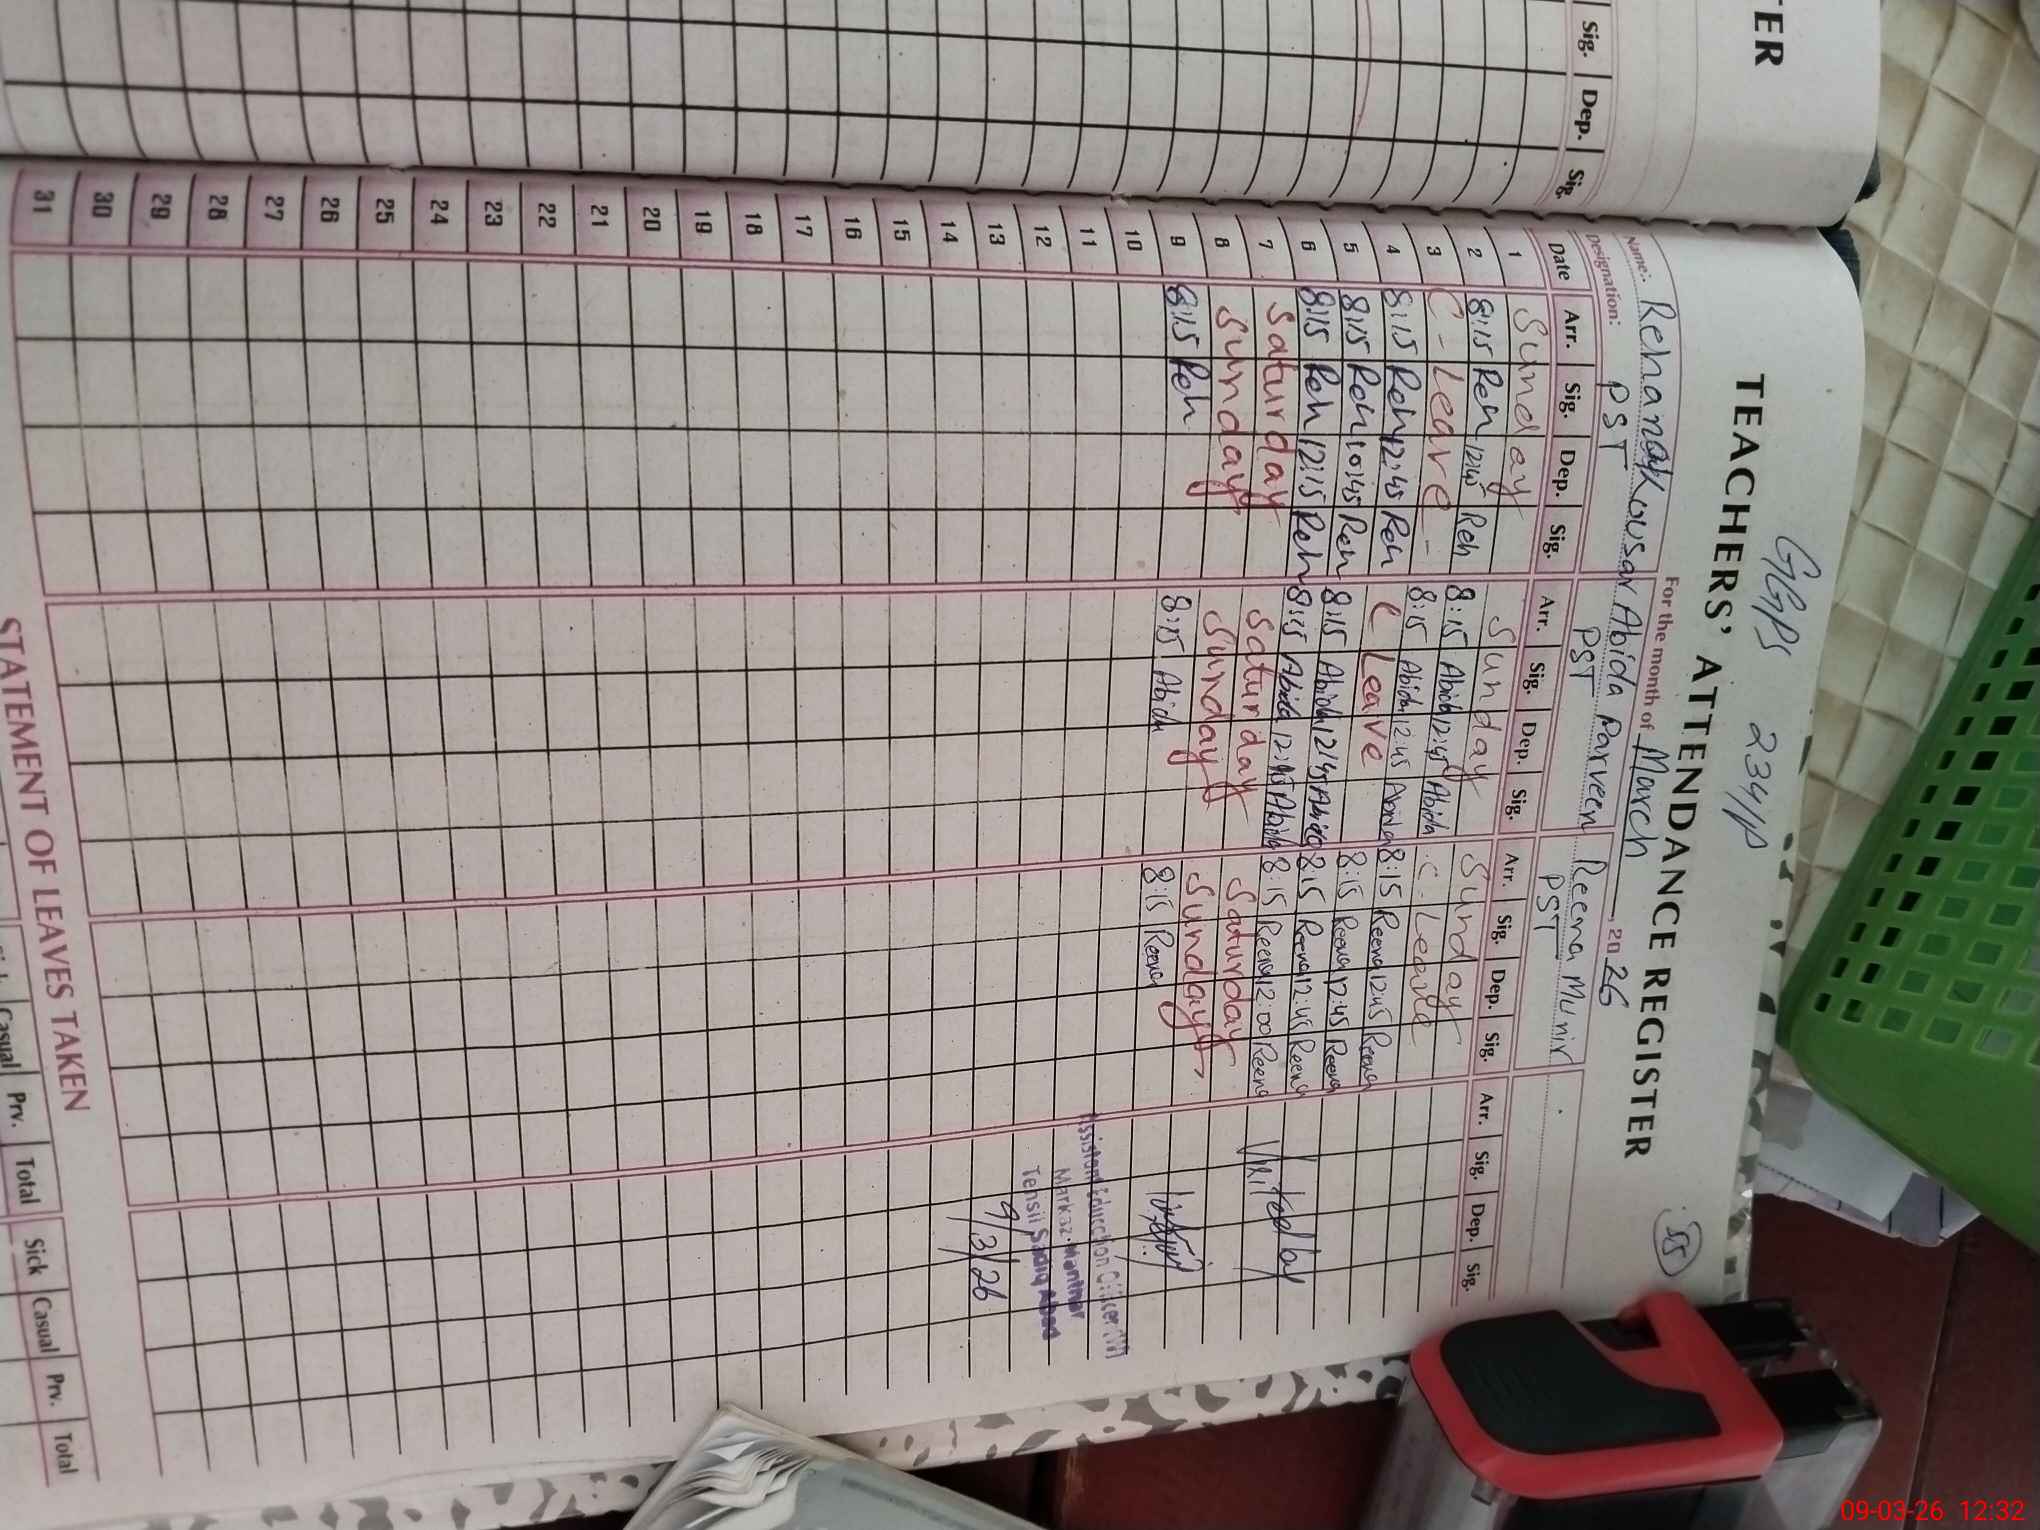 TER
Sig. Dep. Sig.
GGPS 234/P
TEACHERS' ATTENDANCE REGISTER
55
For the month of March, 2026
Name:. Rehana Kousar Abida Parveen Reena Munir
Designation: PST PST PST
Date Arr. Sig. Dep. Sig. Arr. Sig. Dep. Sig. Arr. Sig. Dep. Sig. Arr. Sig. Dep. Sig.
1 Sunday Sunday Sunday
2 8:15 Reh 12:45 Reh 8:15 Abida 12:45 Abida C. Leave
3 C - Leave - 8:15 Abida 12:45 Abida 8:15 Reena 12:45 Reena
4 8:15 Reh 12:45 Reh C Leave 8:15 Reena 12:45 Reena
5 8:15 Reh 10:45 Reh 8:15 Abida 12:45 Abida 8:15 Reena 12:45 Reena
6 8:15 Reh 12:15 Reh 8:15 Abida 12:15 Abida 8:15 Reena 12:00 Reena
7 Saturday Saturday Saturday
8 Sunday Sunday Sunday
9 8:15 Reh 8:15 Abida 8:15 Reena
Visited by
Assistant Education Officer (W)
Markaz-Manthar
Tehsil Sadiq Abad
9/3/26
10
11
12
13
14
15
16
17
18
19
20
21
22
23
24
25
26
27
28
29
30
31
STATEMENT OF LEAVES TAKEN
Casual Prv. Total Sick Casual Prv. Total
09-03-26 12:32